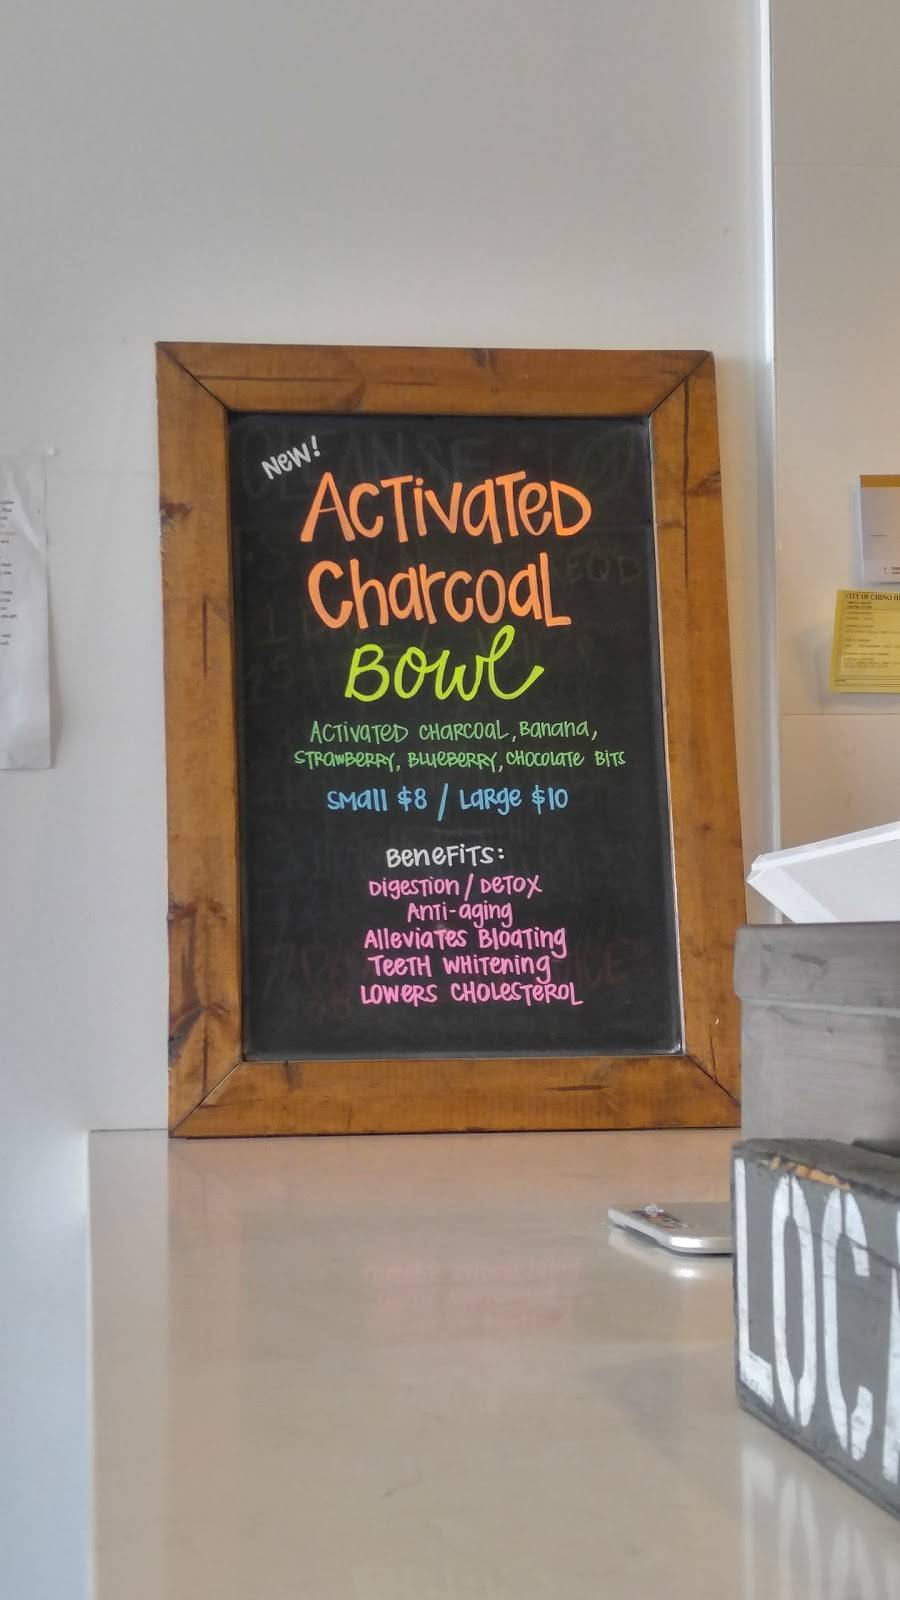 New!
Activated
Charcoal
Bowl
Activated Charcoal, Banana,
Strawberry, Blueberry, Chocolate Bits
Small $8 / Large $10
Benefits:
Digestion / Detox
Anti-aging
Alleviates Bloating
Teeth Whitening
Lowers Cholesterol
CITY OF CHINO
LOC